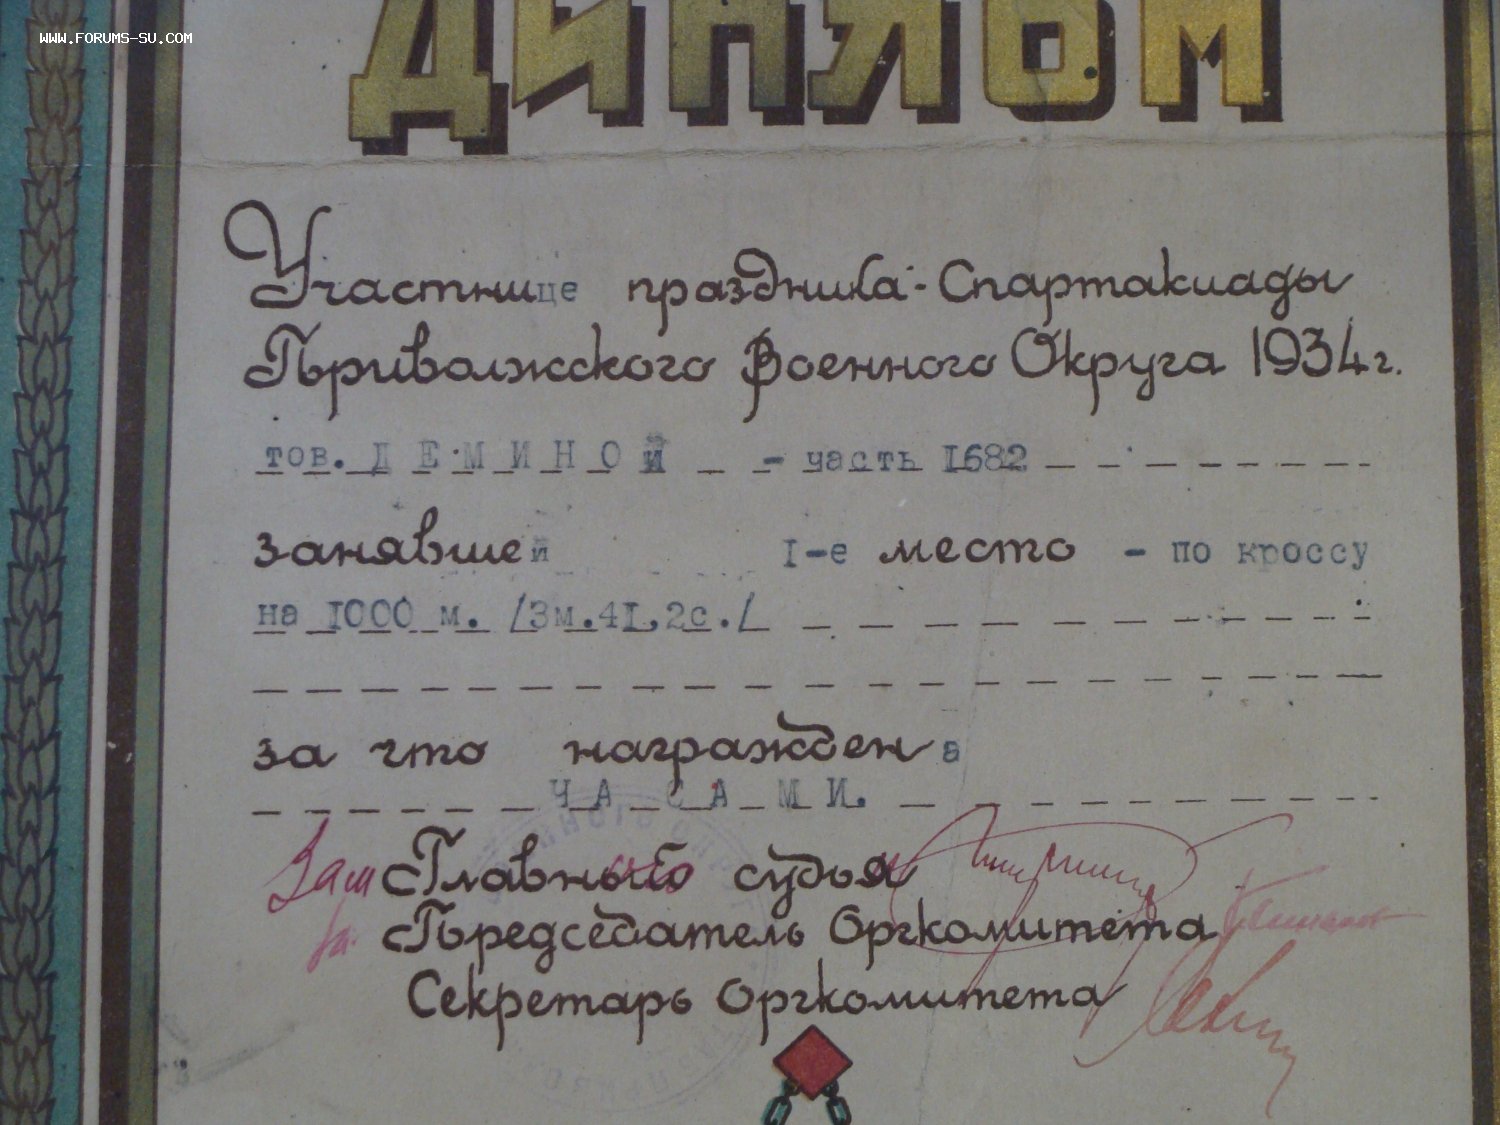 WWW.FORUMS-SU.COM
ДИПЛОМ
Участнице праздника-Спартакиады
Приволжского Военного Округа 1934 г.
тов. ДЕМИНОЙ - часть 1682
занявшей I-е место - по кроссу
на 1000 м. /3м.41,2с./
за что награждена
ЧАСАМИ.
Зам Главный судья
Председатель Оргкомитета
Секретарь Оргкомитета